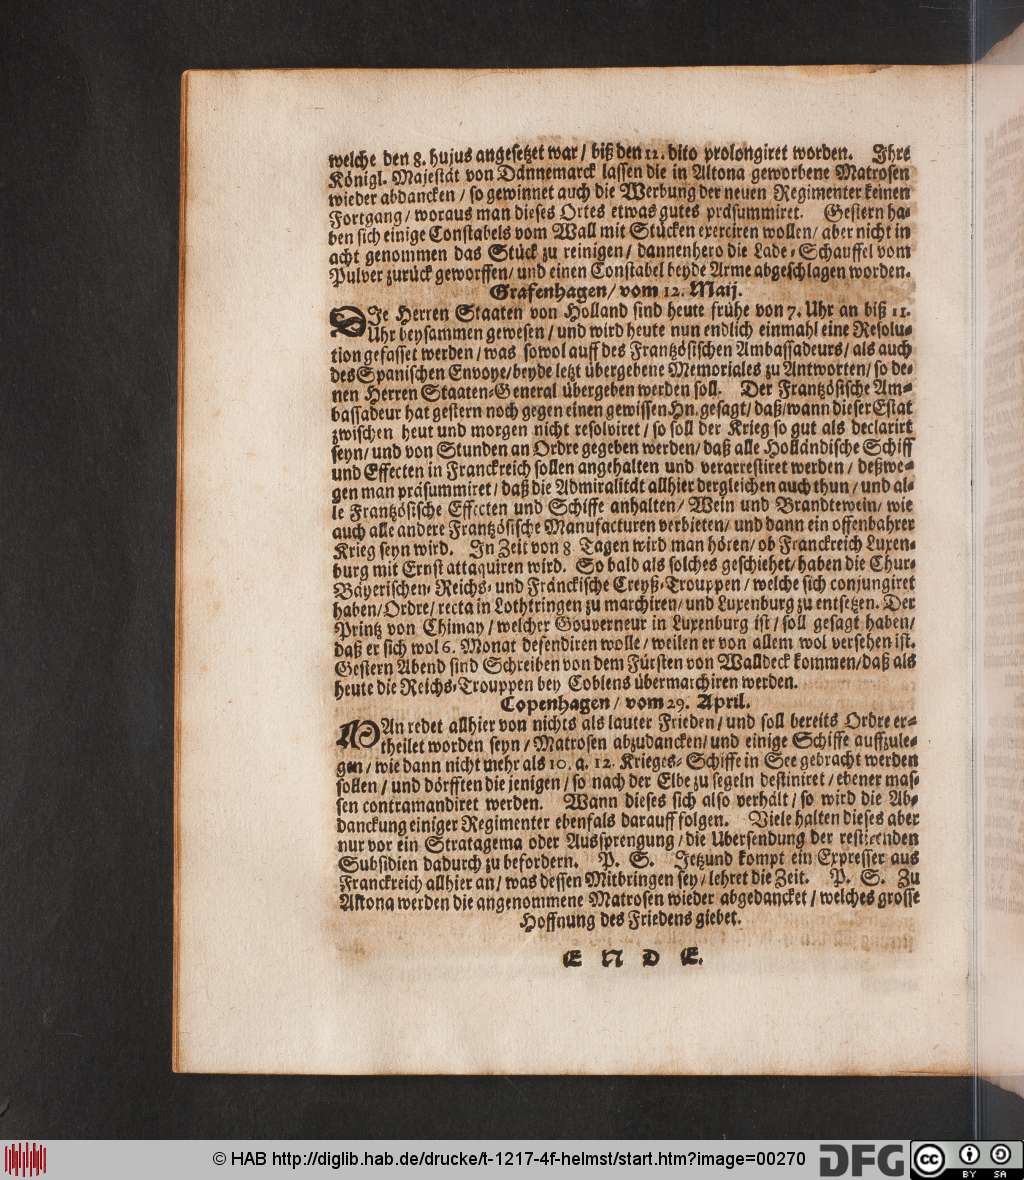 welche den 8. hujus angesetzet war / biß den 12. dito prolongiret worden. Ihre
Königl. Majestät von Dännemarck lassen die in Altona geworbene Matrosen
wieder abdancken / so gewinnet auch die Werbung der neuen Regimenter keinen
Fortgang / woraus man dieses Ortes etwas gutes präsummiret. Gestern ha-
ben sich einige Constabels vom Wall mit Stücken exerciren wollen / aber nicht in
acht genommen das Stück zu reinigen / dannenhero die Lade-Schauffel vom
Pulver zurück geworffen / und einen Constabel beyde Arme abgeschlagen worden.
Grafenhagen / vom 12. Maij.
DIe Herren Staaten von Holland sind heute frühe von 7. Uhr an biß 11.
Uhr beysammen gewesen / und wird heute nun endlich einmahl eine Resolu-
tion gefasset werden / was sowol auff des Frantzösischen Ambassadeurs / als auch
des Spanischen Envoye / beyde letzt übergebene Memoriales zu Antworten / so de-
nen Herren Staaten-General übergeben werden soll. Der Frantzösische Am-
bassadeur hat gestern noch gegen einen gewissen Hn. gesagt / daß / wann dieser Estat
zwischen heut und morgen nicht resolviret / so soll der Krieg so gut als declarirt
seyn / und von Stunden an Ordre gegeben werden / daß alle Holländische Schiff
und Effecten in Franckreich sollen angehalten und verarrestiret werden / deßwe-
gen man präsummiret / daß die Admiralität allhier dergleichen auch thun / und al-
le Frantzösische Effecten und Schiffe anhalten / Wein und Brandtewein / wie
auch alle andere Frantzösische Manufacturen verbieten / und dann ein offenbahrer
Krieg seyn wird. In Zeit von 8 Tagen wird man hören / ob Franckreich Luxen-
burg mit Ernst attaquiren wird. So bald als solches geschiehet / haben die Chur-
Bäyerischen- Reichs- und Fränckische Creyß-Trouppen / welche sich conjungiret
haben / Ordre / recta in Lothtringen zu marchiren / und Luxenburg zu entsetzen. Der
Printz von Chimay / welcher Gouverneur in Luxenburg ist / soll gesagt haben /
daß er sich wol 6. Monat defendiren wolle / weilen er von allem wol versehen ist.
Gestern Abend sind Schreiben von dem Fürsten von Walldeck kommen / daß als
heute die Reichs-Trouppen bey Coblens übermarchiren werden.
Copenhagen / vom 29. April.
MAn redet allhier von nichts als lauter Frieden / und soll bereits Ordre er-
theilet worden seyn / Matrosen abzudancken / und einige Schiffe auffzule-
gen / wie dann nicht mehr als 10. a. 12. Krieges-Schiffe in See gebracht werden
sollen / und dörfften die jenigen / so nach der Elbe zu segeln destiniret / ebener mas-
sen contramandiret werden. Wann dieses sich also verhält / so wird die Ab-
danckung einiger Regimenter ebenfals darauff folgen. Viele halten dieses aber
nur vor ein Stratagema oder Aussprengung / die Ubersendung der restirenden
Subsidien dadurch zu befordern. P. S. Jetzund kompt ein Expresser aus
Franckreich allhier an / was dessen Mitbringen sey / lehret die Zeit. P. S. Zu
Altona werden die angenommene Matrosen wieder abgedancket / welches grosse
Hoffnung des Friedens giebet.
ENDE.
© HAB http://diglib.hab.de/drucke/t-1217-4f-helmst/start.htm?image=00270
DFG
cc BY SA